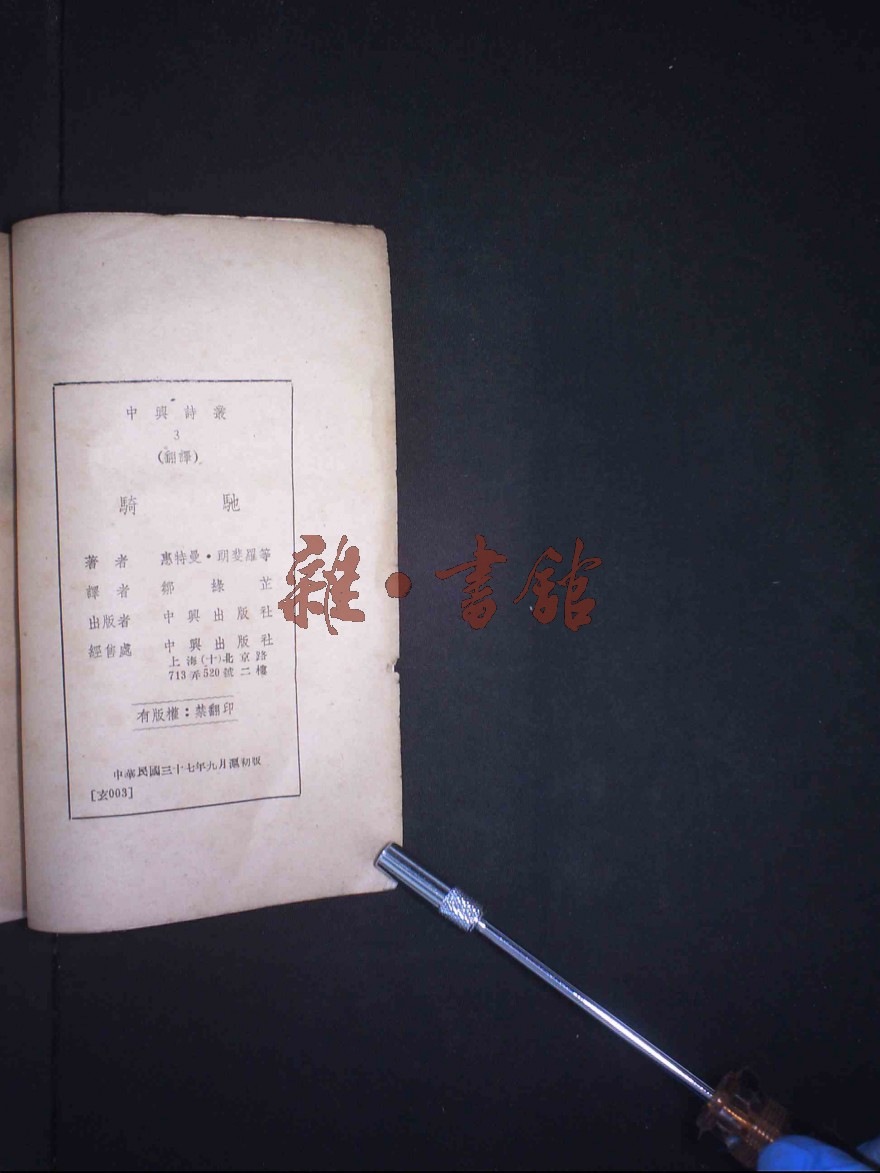 中興詩叢
3
(翻譯)
騎馳
著者 惠特曼·朗斐羅等
譯者 鄒綠芷
出版者 中興出版社
經售處 中興出版社
上海(十)北京路
713弄520號二樓
有版權：禁翻印
中華民國三十七年九月滬初版
[玄003]
雜·書館